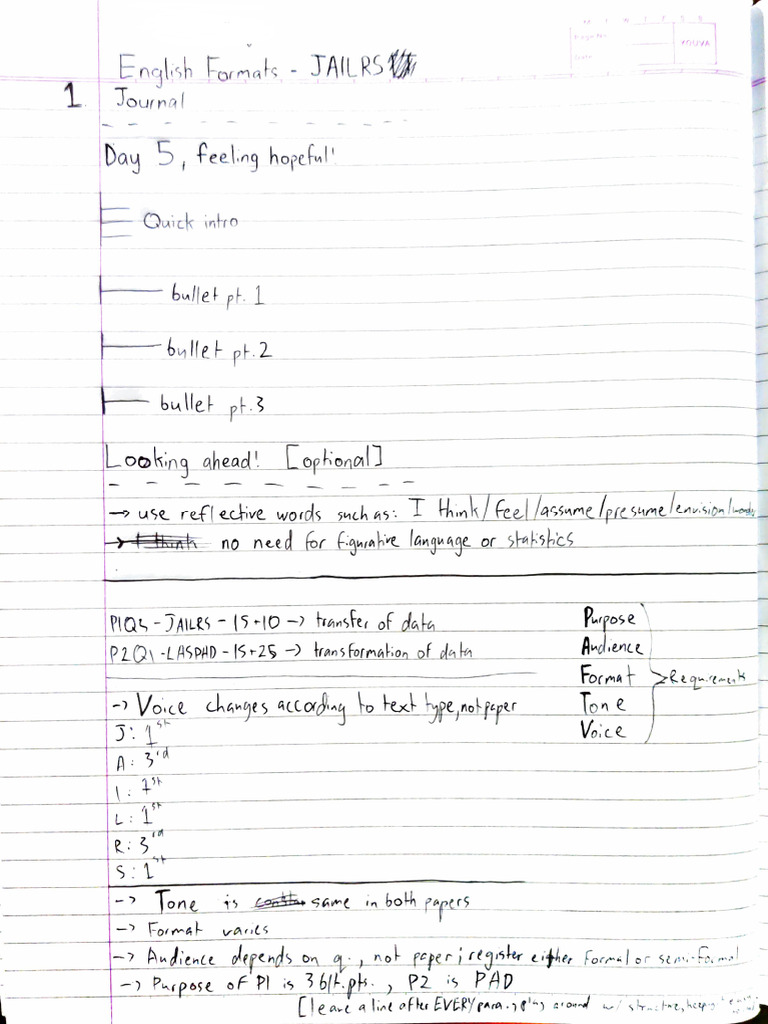 M T W T F S S
Page No.
YOUVA
Date
English Formats - JAILRS
1 Journal
Day 5, feeling hopeful!
Quick intro
bullet pt. 1
bullet pt. 2
bullet pt. 3
Looking ahead! [optional]
→ use reflective words such as: I think/feel/assume/presume/envision/
→ I think no need for figurative language or statistics
P1Q5 - JAILRS - 15+10 → transfer of data
P2Q1 - LASPAD - 15+25 → transformation of data
Purpose
Audience
Format
Tone
Voice
Requirements
→ Voice changes according to text type, not paper
J: 1st
A: 3rd
I: 1st
L: 1st
R: 3rd
S: 1st
→ Tone is same in both papers
→ Format varies
→ Audience depends on q., not paper; register either formal or semi-formal
→ Purpose of P1 is 3 blt. pts., P2 is PAD
[leave a line after EVERY para.; play around w/ structure, keep